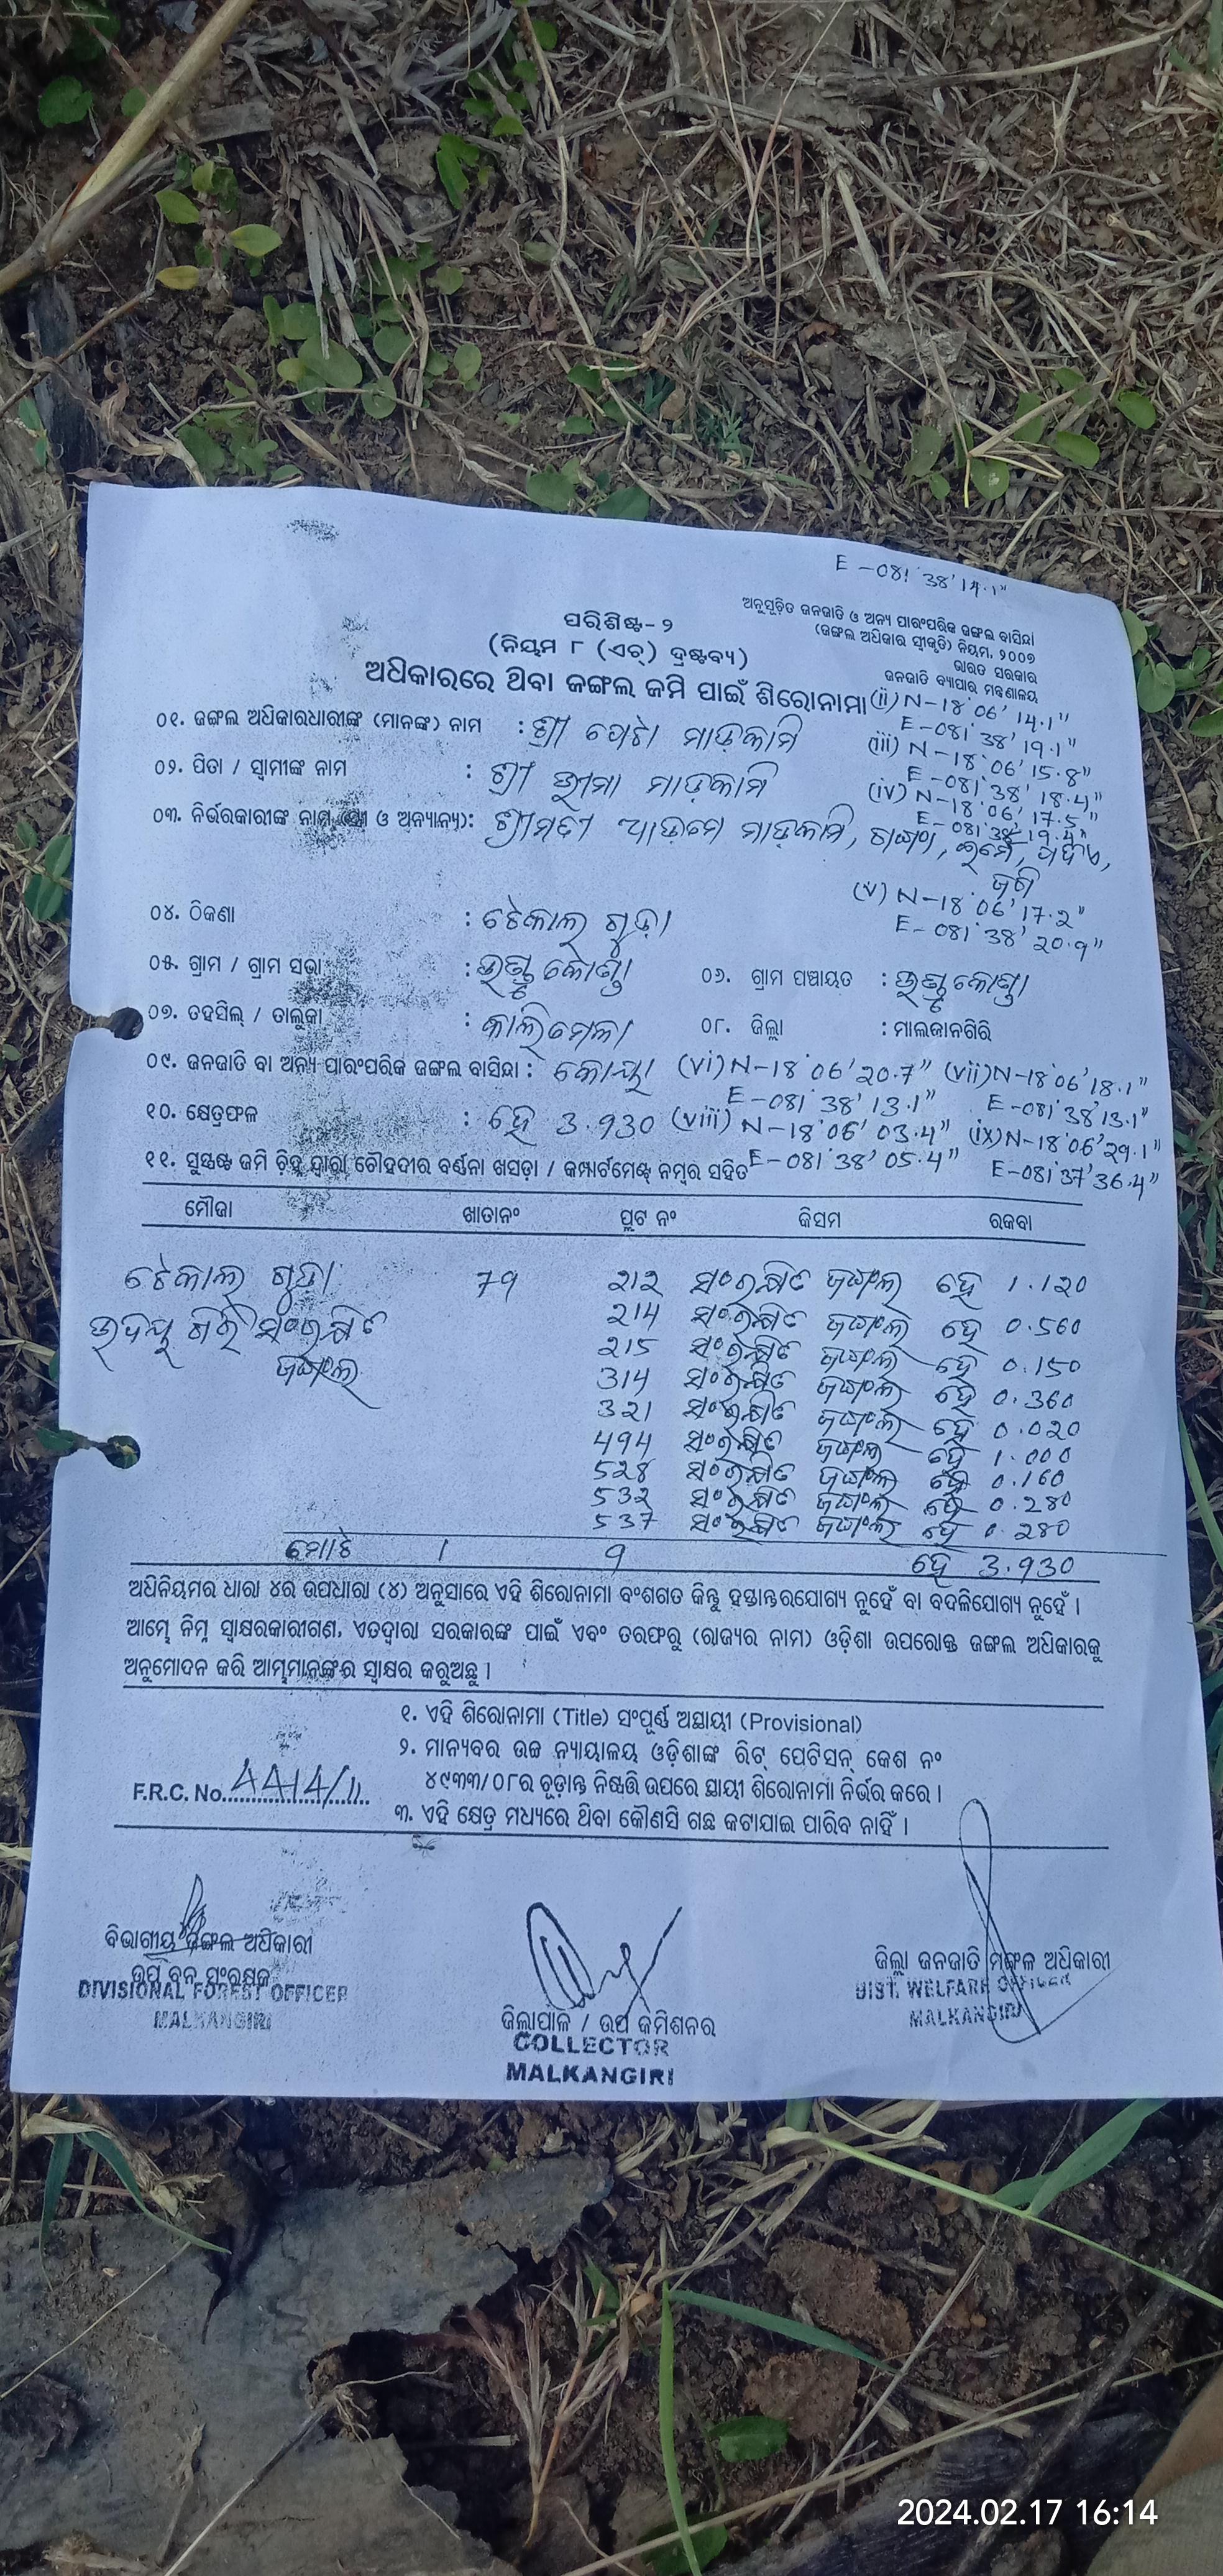 E-081°38'14.1"
ଅନୁସୂଚିତ ଜନଜାତି ଓ ଅନ୍ୟ ପାରଂପରିକ ଜଙ୍ଗଲ ବାସିନ୍ଦା
(ଜଙ୍ଗଲ ଅଧିକାର ସ୍ୱୀକୃତି) ନିୟମ, ୨୦୦୭
ଭାରତ ସରକାର
ଜନଜାତି ବ୍ୟାପାର ମନ୍ତ୍ରଣାଳୟ
ପରିଶିଷ୍ଟ-୨
(ନିୟମ ୮ (ଏଚ୍) ଦ୍ରଷ୍ଟବ୍ୟ)
ଅଧିକାରରେ ଥିବା ଜଙ୍ଗଲ ଜମି ପାଇଁ ଶିରୋନାମା
(ii) N-18°06'14.1"
E-081°38'19.1"
(iii) N-18°06'15.8"
E-081°38'18.4"
(iv) N-18°06'17.5"
E-081°38'19.4"
୦୧. ଜଙ୍ଗଲ ଅଧିକାରଧାରୀଙ୍କ (ମାନଙ୍କ) ନାମ : ଶ୍ରୀ ମାଡ଼କାମି
୦୨. ପିତା / ସ୍ୱାମୀଙ୍କ ନାମ : ଶ୍ରୀ ଭୀମା ମାଡ଼କାମି
୦୩. ନିର୍ଭରକାରୀଙ୍କ ନାମ (ସ୍ତ୍ରୀ ଓ ଅନ୍ୟାନ୍ୟ): ଶ୍ରୀମତୀ ମାଡ଼କାମି,
(v) N-18°06'17.2"
E-081°38'20.9"
୦୪. ଠିକଣା : ଟେକାଲ ଗୁଡ଼ା
୦୫. ଗ୍ରାମ / ଗ୍ରାମ ସଭା : ୦୬. ଗ୍ରାମ ପଞ୍ଚାୟତ :
୦୭. ତହସିଲ୍ / ତାଲୁକା : କାଲିମେଳା ୦୮. ଜିଲ୍ଲା : ମାଲକାନଗିରି
୦୯. ଜନଜାତି ବା ଅନ୍ୟ ପାରଂପରିକ ଜଙ୍ଗଲ ବାସିନ୍ଦା : କୋୟା (vi) N-18°06'20.7" (vii) N-18°06'18.1"
E-081°38'13.1" E-081°38'13.1"
୧୦. କ୍ଷେତ୍ରଫଳ : ହେ 3.930 (viii) N-18°06'03.4" (ix) N-18°06'29.1"
E-081°38'05.4" E-081°37'36.4"
୧୧. ସୁସ୍ପଷ୍ଟ ଜମି ଚିହ୍ନ ଦ୍ୱାରା ଚୌହଦୀର ବର୍ଣ୍ଣନା ଖସଡ଼ା / କମ୍ପାର୍ଟମେଣ୍ଟ ନମ୍ବର ସହିତ
ମୌଜା ଖାତାନଂ ପ୍ଲଟ ନଂ କିସମ ରକବା
ଟେକାଲ ଗୁଡ଼ା 79 212 ସଂରକ୍ଷିତ ଜଙ୍ଗଲ ହେ 1.120
ଉଦୟ ଗିରି ସଂରକ୍ଷିତ 214 ସଂରକ୍ଷିତ ଜଙ୍ଗଲ ହେ 0.560
ଜଙ୍ଗଲ 215 ସଂରକ୍ଷିତ ଜଙ୍ଗଲ ହେ 0.150
314 ସଂରକ୍ଷିତ ଜଙ୍ଗଲ ହେ 0.360
321 ସଂରକ୍ଷିତ ଜଙ୍ଗଲ ହେ 0.020
494 ସଂରକ୍ଷିତ ଜଙ୍ଗଲ ହେ 1.000
528 ସଂରକ୍ଷିତ ଜଙ୍ଗଲ ହେ 0.160
532 ସଂରକ୍ଷିତ ଜଙ୍ଗଲ ହେ 0.280
537 ସଂରକ୍ଷିତ ଜଙ୍ଗଲ ହେ 0.280
ମୋଟ 1 9 ହେ 3.930
ଅଧିନିୟମର ଧାରା ୪ର ଉପଧାରା (୪) ଅନୁସାରେ ଏହି ଶିରୋନାମା ବଂଶଗତ କିନ୍ତୁ ହସ୍ତାନ୍ତରଯୋଗ୍ୟ ନୁହେଁ ବା ବଦଳିଯୋଗ୍ୟ ନୁହେଁ ।
ଆମ୍ଭେ ନିମ୍ନ ସ୍ୱାକ୍ଷରକାରୀଗଣ, ଏତଦ୍ୱାରା ସରକାରଙ୍କ ପାଇଁ ଏବଂ ତରଫରୁ (ରାଜ୍ୟର ନାମ) ଓଡ଼ିଶା ଉପରୋକ୍ତ ଜଙ୍ଗଲ ଅଧିକାରକୁ
ଅନୁମୋଦନ କରି ଆମ୍ଭମାନଙ୍କର ସ୍ୱାକ୍ଷର କରୁଅଛୁ ।
୧. ଏହି ଶିରୋନାମା (Title) ସଂପୂର୍ଣ୍ଣ ଅସ୍ଥାୟୀ (Provisional)
୨. ମାନ୍ୟବର ଉଚ୍ଚ ନ୍ୟାୟାଳୟ ଓଡ଼ିଶାଙ୍କ ରିଟ୍ ପେଟିସନ୍ କେଶ ନଂ
୪୯୩୩/୦୮ର ଚୂଡ଼ାନ୍ତ ନିଷ୍ପତ୍ତି ଉପରେ ସ୍ଥାୟୀ ଶିରୋନାମା ନିର୍ଭର କରେ ।
୩. ଏହି କ୍ଷେତ୍ର ମଧ୍ୟରେ ଥିବା କୌଣସି ଗଛ କଟାଯାଇ ପାରିବ ନାହିଁ ।
F.R.C. No. 4414/11
ବିଭାଗୀୟ ଜଙ୍ଗଲ ଅଧିକାରୀ
ଉପ ବନ ସଂରକ୍ଷକ
DIVISIONAL FOREST OFFICER
MALKANGIRI
ଜିଲ୍ଲାପାଳ / ଉପ କମିଶନର
COLLECTOR
MALKANGIRI
ଜିଲ୍ଲା ଜନଜାତି ମଙ୍ଗଳ ଅଧିକାରୀ
DIST. WELFARE OFFICER
MALKANGIRI
2024.02.17 16:14